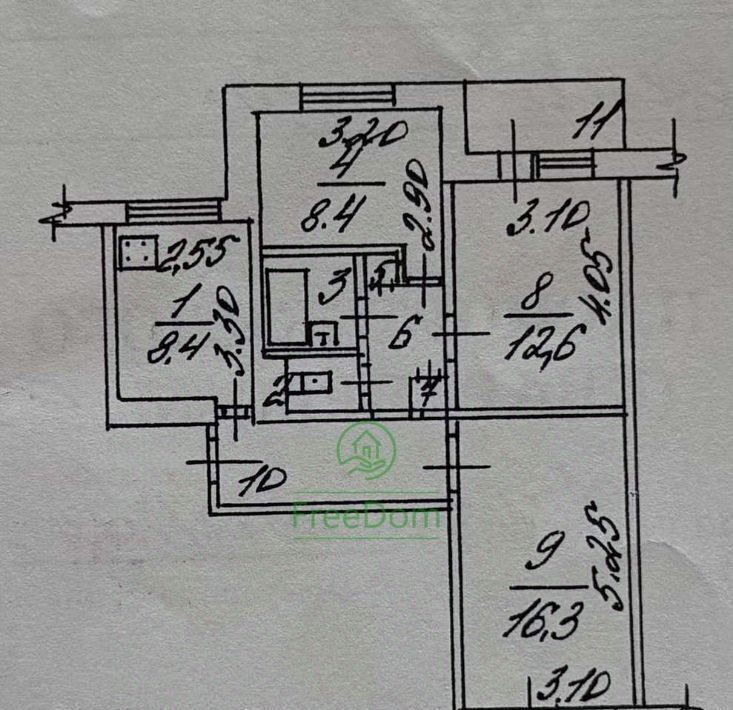 11
3.20
4
8.4
2.90
3.10
8
12,6
4.05
2,55
1
8,4
3.30
3
5
6
T
2
7
10
FreeDom
9
16,3
5.25
3.10